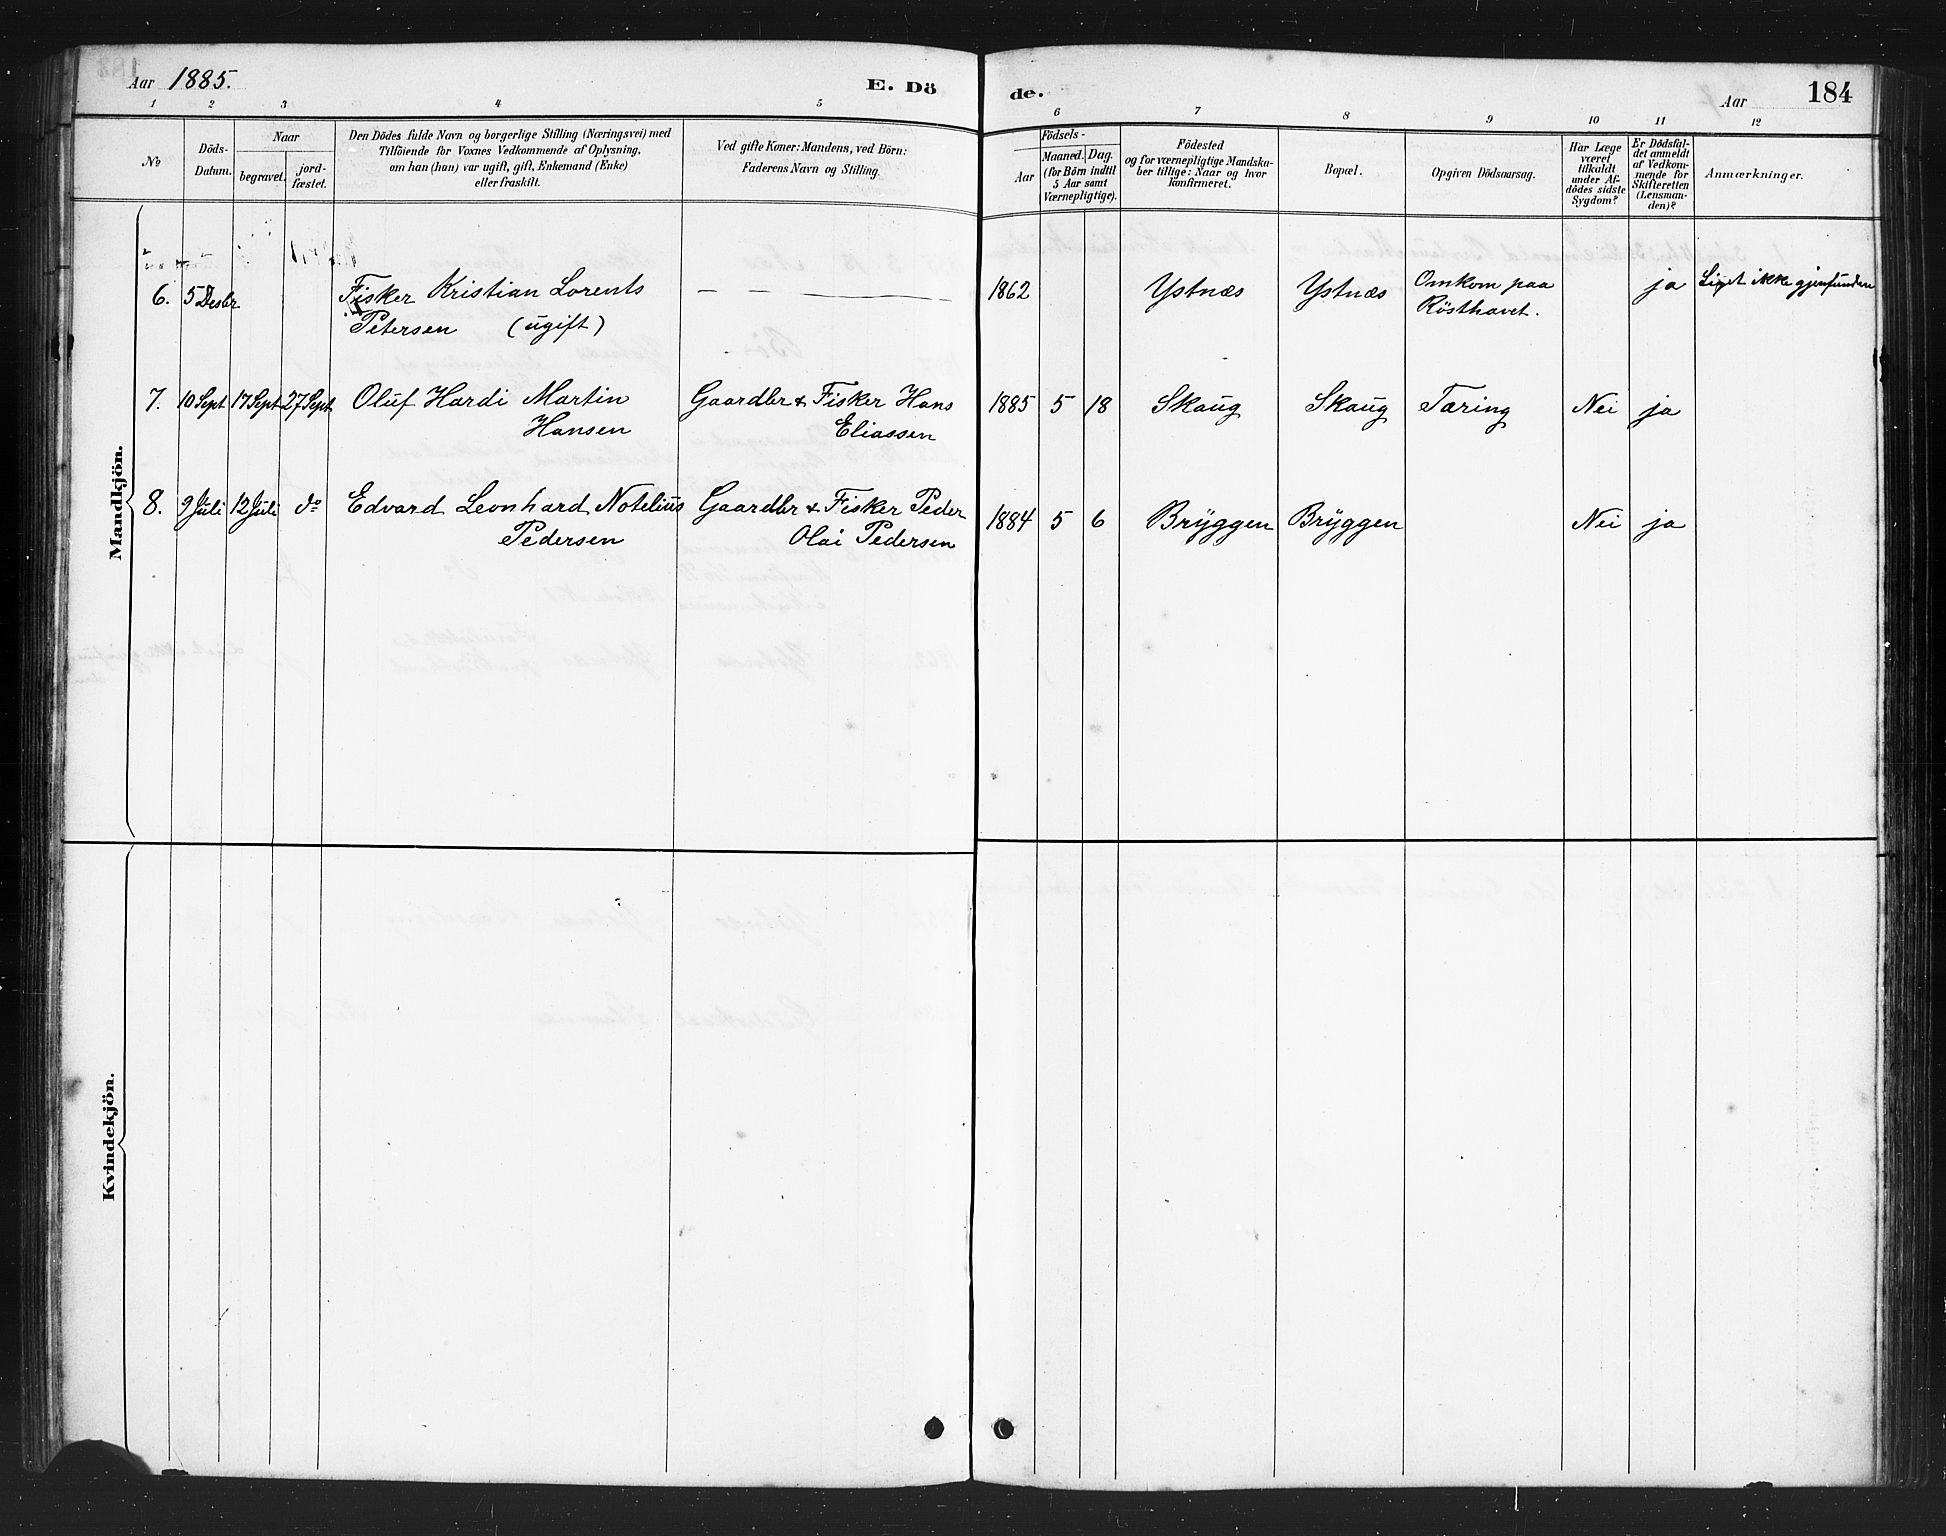 Aar 1885.
E. Dö
de.
Aar
184
1 2 3 4 5
6 7 8 9 10 11 12
No
Döds-
Datum.
Naar
begravet.
jord-
fæstet.
Den Dödes fulde Navn og borgerlige Stilling (Næringsvei) med
Tilföiende for Voxnes Vedkommende af Oplysning,
om han (hun) var ugift, gift, Enkemand (Enke)
eller fraskilt.
Ved gifte Koner: Mandens, ved Börn:
Faderens Navn og Stilling.
Födsels-
Aar
Maaned. Dag.
(for Börn indtil
5 Aar samt
Værnepligtige).
Födested
og for værnepligtige Mandska-
ber tillige: Naar og hvor
konfirmeret.
Bopæl.
Opgiven Dödsaarsag.
Har Læge
været
tilkaldt
under Af-
dödes sidste
Sygdom?
Er Dödsfal-
det anmeldt
af Vedkom-
mende for
Skifteretten
(Lensman-
den)?
Anmærkninger.
Mandkjön.
6. 5 Desbr Fisker Kristian Lorents — — 1862 Ystnæs Ystnæs Omkom paa ja Liget ikke gjenfunden
Petersen (ugift) Rösthavet.
7. 10 Sept 17 Sept 27 Sept Oluf Hardi Martin Gaardbr & Fisker Hans 1885 5 18 Skaug Skaug Tæring Nei ja
Hansen Eliassen
8. 9 Juli 12 Juli do Edvard Leonhard Notelius Gaardbr & Fisker Peder 1884 5 6 Bryggen Bryggen Nei ja
Pedersen Olai Pedersen
Kvindekjön.